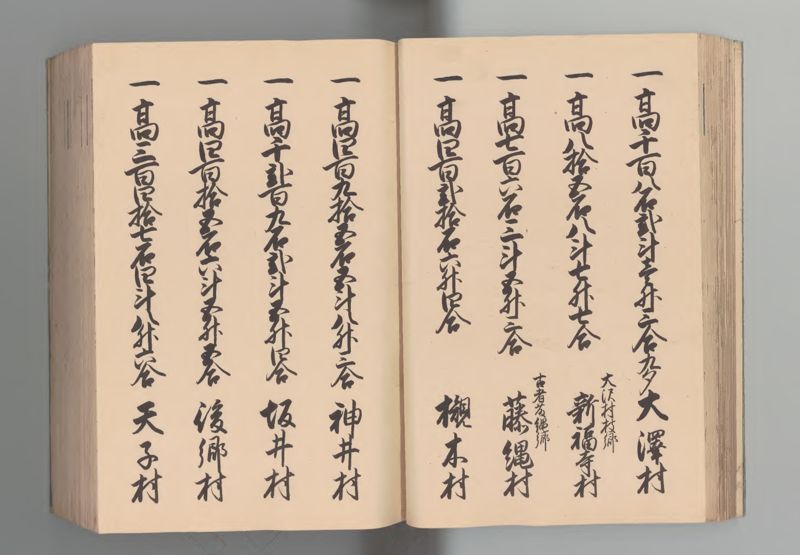 一高千百八石弐斗壱升三合九夕大澤村
一高八拾五石八斗七升七合
大沢村枝郷
新福寺村
一高七百六石三斗五升三合
古者藤縄郷
藤縄村
一高四百弐拾石六升四合 櫬木村
一高四百九拾五石五斗八升三合 神井村
一高千弐百九石弐斗五升四合 坂井村
一高四百拾五石六斗五升五合 後郷村
一高三百四拾七石四斗八升六合 天子村